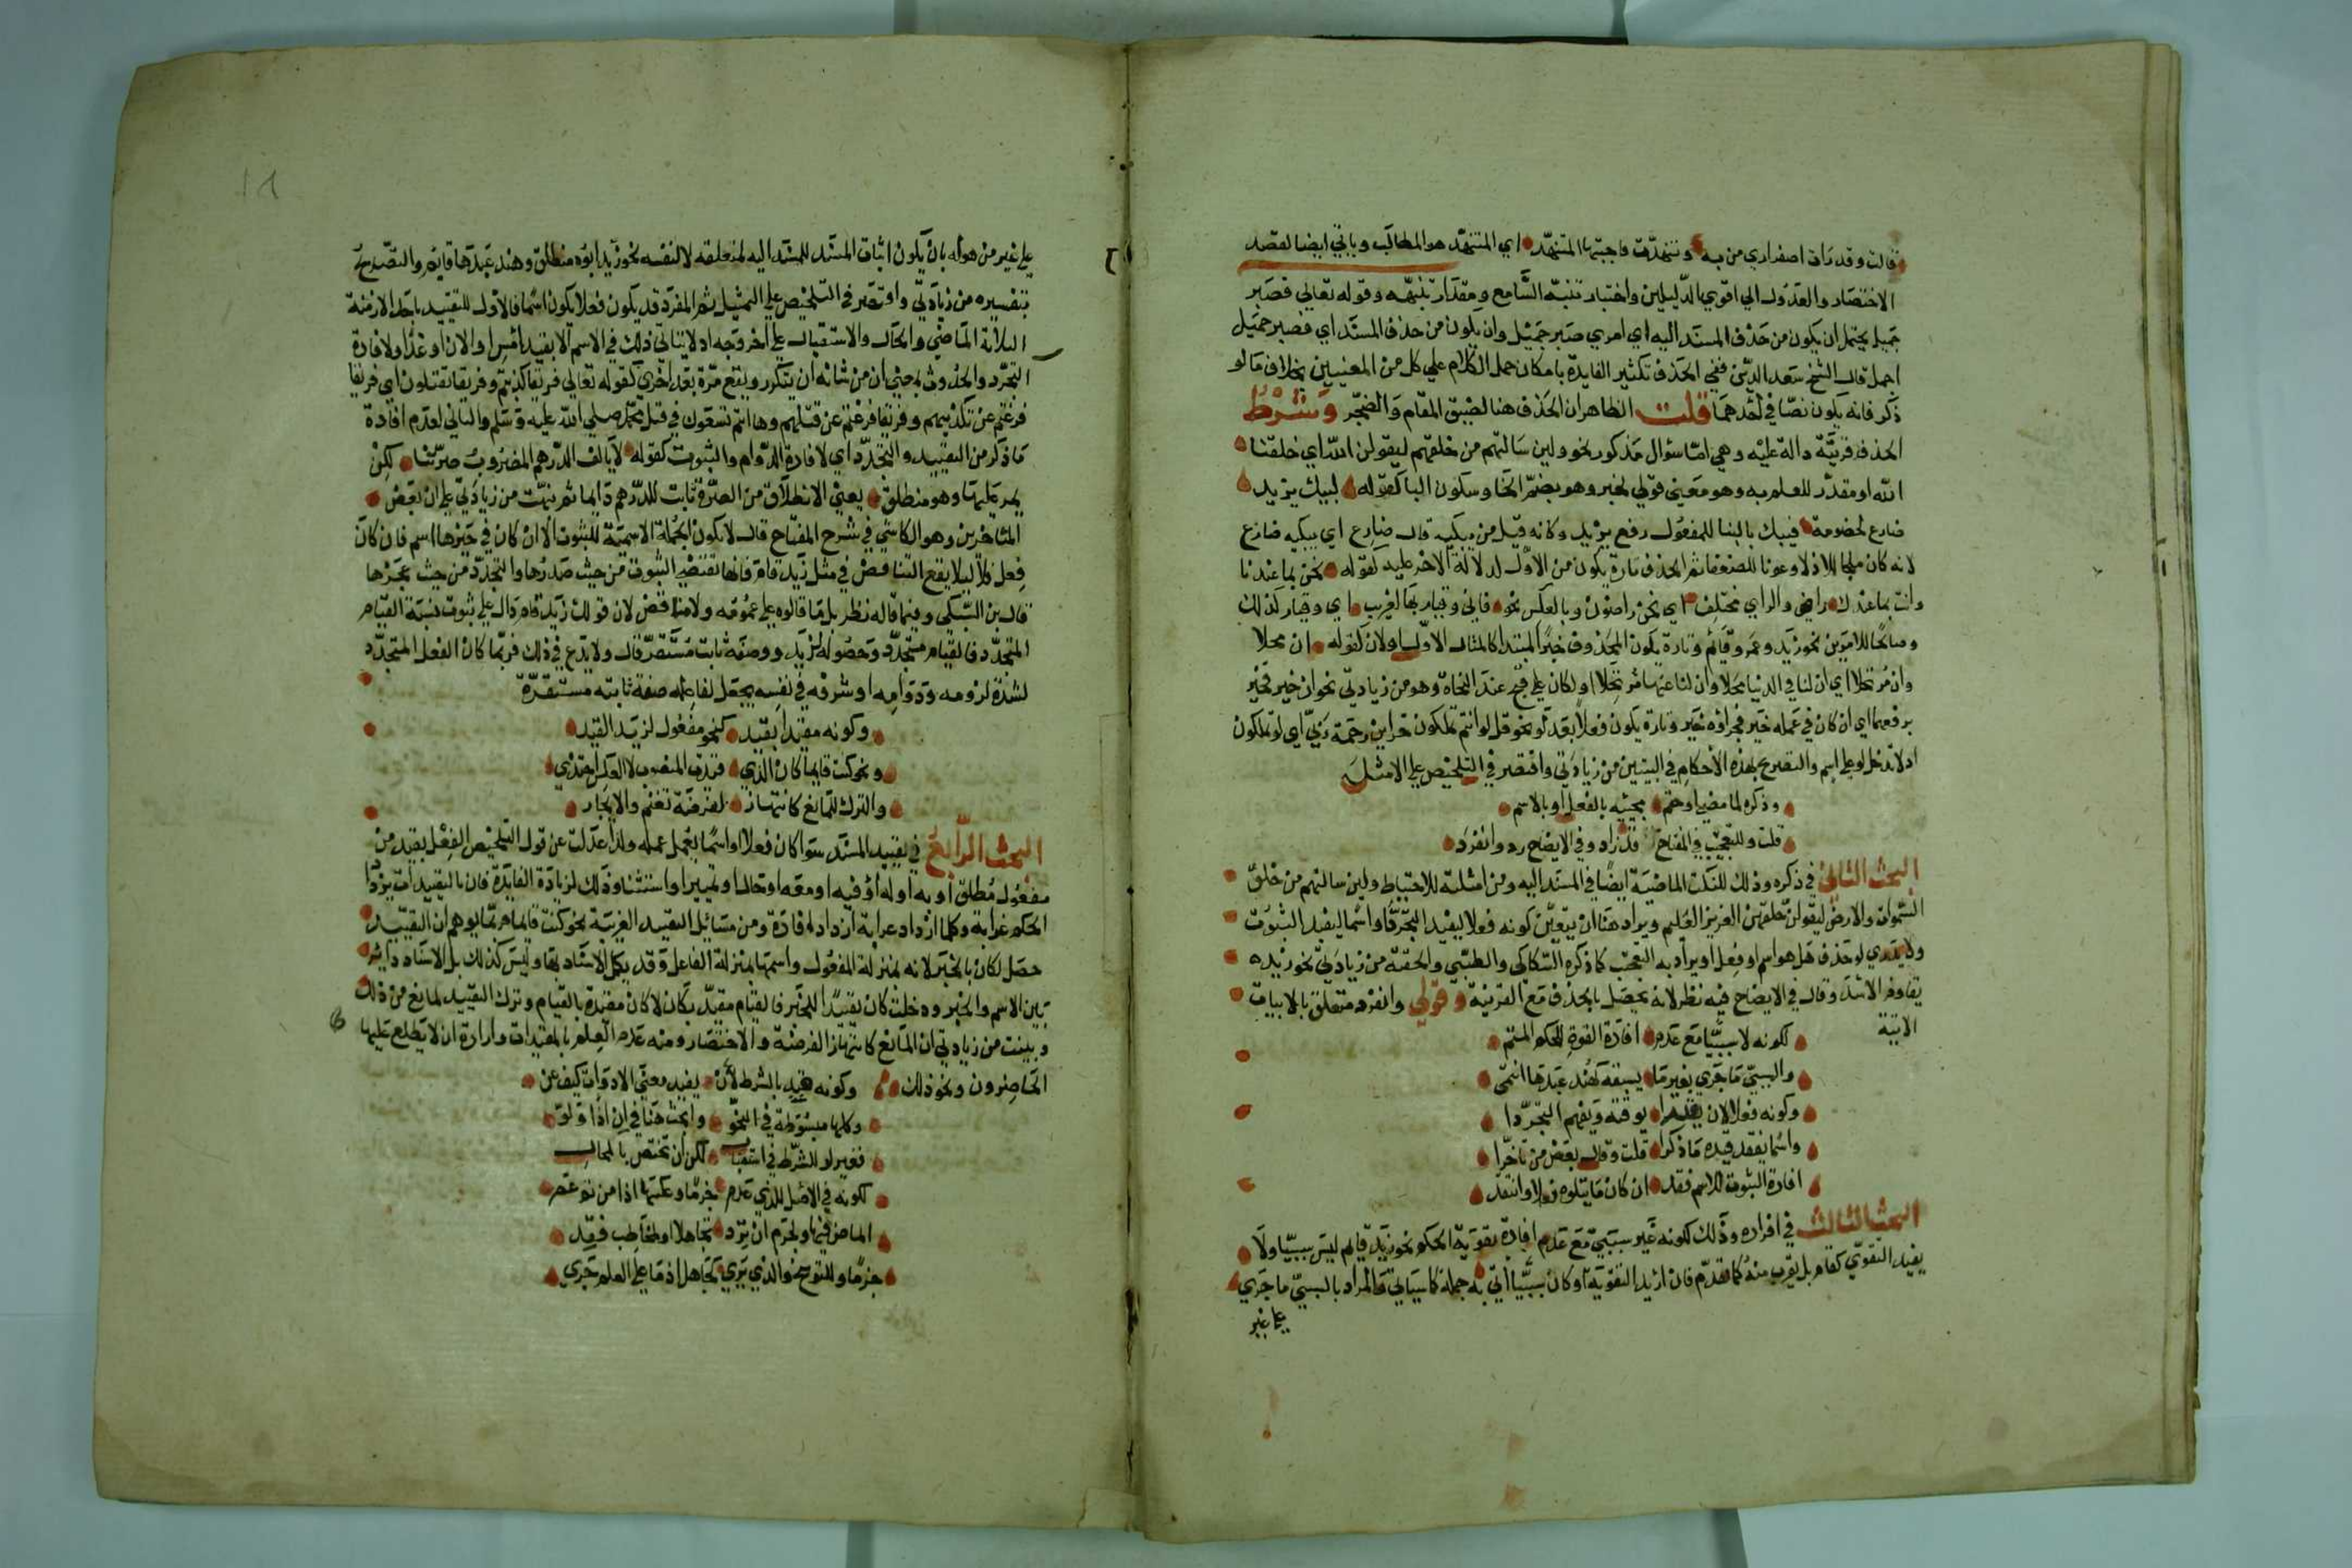 قالت وقد رات اصفراري من به وتنهدت فاجبتها المتنهد اي المتنهد هو المطالب وياتي ايضا لقصد
الاختصار والعدول الي اقوي الدليلين واختبار تنبه السامع ومقدار تنبهه وقوله تعالي فصبر
جميل يحتمل ان يكون من حذف المسند اليه اي امري صبر جميل وان يكون من حذف المسند اي فصبر جميل
اجمل قال الشيخ سعد الدين ففي الحذف تكثير الفايدة بامكان حمل الكلام علي كل من المعنيين بخلاف ما لو
ذكر فانه يكون نصا في احدهما قلت الظاهر ان الحذف هنا لضيق المقام والضجر وشرط
الحذف قرينة دالة عليه وهي اما سؤال مذكور نحو ولين سالتهم من خلقهم ليقولن الله اي خلقنا
الله او مقدر للعلم به وهو معني قولي لخبر وهو بضم الخا وسكون البا كقوله لبيك يزيد
ضارع لخصومة فيبك بالبنا للمفعول رفع يزيد وكانه قيل من يبكيه قال ضارع اي يبكيه ضارع
لانه كان ملجا للاذلا وعونا للضعفا ثم الحذف تارة يكون من الاول لدلالة الاخر عليه كقوله نحن بما عندنا
وانت بما عندك راض والراي مختلف اي نحن راضون وبالعكس نحو فاني وقيار بها لغريب اي وقيار كذلك
وصالحا للامرين نحو زيد وعمرو قائم وتارة يكون المحذوف خبر المبتدا كالمثال الاول ولان كقوله ان محلا
وان مرتحلا اي ان لنا في الدنيا محلا وان لنا عنها مرتحلا او لكان علي قبح عند النحاة وهو من زيادتي نحو ان خير فخير
برفعهما اي ان كان في عمله خير فجزاؤه خير وتارة يكون فعلا بعد لو نحو قل لو انتم تملكون خزاين رحمة ربي اي لو تملكون
اذ لا تدخل لو علي اسم والتصريح بهذه الاحكام في البيتين من زيادتي واقتصر في التلخيص علي الامثلة
وذكره لما مضي او حتم مجيئه بالفعل او بالاسم
قلت وللتعجيب في المفتاح قد زاد وفي الايضاح رده وانفرد
البحث الثاني في ذكره وذلك للنكت الماضية ايضا في المسند اليه ومن امثلته للاحتياط ولين سالتهم من خلق
السموات والارض ليقولن خلقهن العزيز العليم ويراد هنا ان يتعين كونه فعلا ليفيد التجدد او اسما ليفيد الثبوت
ولا يدري لو حذف هل هو اسم او فعل او يراد به التعجب كما ذكره السكاكي والطيبي والحقته من زيادتي نحو زيد
يقاوم الاسد وقال في الايضاح فيه نظر لانه يحصل بالحذف مع القرينة وقولي وانفرد متعلق بالابيات
الاتية
لكونه لا سببيا مع عدم افادة القوة للحكم المتم
والسببي ما جري بغير ما يسبقه كهند عبدها انتمي
وكونه فعلا لان يقيدا بوقته ويفهم التجددا
واسما لفقد قيده ما ذكرا قلت وقال بعض من تاخرا
افادة الثبوت للاسم فقد ان كان ما يتلوه فعلا وانتقد
البحث الثالث في افراده وذلك لكونه غير سببي مع عدم افادة تقوية الحكم نحو زيد قائم ليس سببيا ولا
يفيد التقوي كقام بل يقرب منه كما تقدم فان اريد التقوية او كان سببيا اتي به جملة كما سياتي والمراد بالسببي ما جري
علي غير
علي غير من هو له بان يكون اثبات المسند للمسند اليه لمتعلقه لا لنفسه نحو زيد ابوه منطلق وهند عبدها قايم والتصريح
بتفسيره من زيادتي واقتصر في التلخيص علي التمثيل ثم المفرد قد يكون فعلا يكون اسما فالاول للتقييد باحد الازمنة
الثلاثة الماضي والحال والاستقبال علي اخر وجه اذ لا يتاتي ذلك في الاسم الا بقيد امس او الان او غدا ولافادة
التجدد والحدوث بمعني ان من شانه ان يتكرر ويقع مرة بعد اخري كقوله تعالي فريقا كذبتم وفريقا تقتلون اي فريقا
فرغتم عن تكذيبهم وفريقا فرغتم عن قتلهم وها انتم تسعون في قتل محمد صلي الله عليه وسلم والثاني لعدم افادة
ما ذكر من التقييد والتجدد اي لافادة الدوام والثبوت كقوله لا يالف الدرهم المضروب صرتنا لكن
يمر عليها وهو منطلق يعني الانطلاق من الصرة ثابت للدرهم دايما ثم نبهت من زيادتي علي ان بعض
المتاخرين وهو الكاشي في شرح المفتاح قال لا يكون الجملة الاسمية للثبوت الا ان كان في حيزها اسم فان كان
فعل فلا ليلا يقع التناقض في مثل زيد قام فانها تقتضي الثبوت من حيث صدرها والتجدد من حيث عجزها
قال بن السبكي وفيما قاله نظر بل ما قالوه علي عمومه ولا تناقض لان قولك زيد قام دال علي ثبوت نسبة القيام
المتجدد فالقيام متجدد وحصوله لزيد ووصفه ثابت مستقر قال ولا بدع في ذلك فربما كان الفعل المتجدد
لشدة لزومه ودوامه او شرفه في نفسه يجعل لفاعله صفة ثابتة مستقرة
وكونه مقيدا بقيد كنحو مفعول لزيد القيد
ونحو كنت قايما كان الذي قيدت المنصوب لا العكس احتذي
والترك للمانع كانتهاز لفرضة تغنم والايجاز
البحث الرابع في تقييد المسند سوا كان فعلا او اسما يعمل عمله ولذا عدلت عن قول التلخيص الفعل بقيد من
مفعول مطلق او به او له او فيه او معه او حال او تمييز او استثنا وذلك لزيادة الفايدة فان بالتقييد يزداد
الحكم غرابة وكلما ازداد غرابة ازداد افادة ومن مسائل التقييد الغريبة نحو كنت قائما مما يوهم ان التقييد
حصل لكان بالخبر لانه بمنزلة المفعول واسمها بمنزلة الفاعل وقد يكمل الاسناد بها وليس كذلك بل الاسناد داير
بين الاسم والخبر ودخلت كان تقييدا للخبر فالقيام مقيد بكان لا كان مقيدة بالقيام وترك التقييد لمانع من ذلك
وبينت من زيادتي ان المانع كانتهاز الفرضة والاختصار ومنه عدم العلم بالمقيدات وارادة ان لا يطلع عليها
الحاضرون ونحو ذلك وكونه قيد بالشرط لان يفيد معني الادوات كيف عن
وكلها مبسوطة في النحو وابحث هنا في ان اذا ولو
فغير لو للشرط في استقبال لكن ان تختص بالمحال
لكونه في الاصل للذي عدم جزما وعكسها اذا من ثم عم
الماض فيها ولجزم ان ترد تجاهلا او لخاطب فقد
جزما وللتوبيخ والذي يري كجاهل اذ ما علي العلم جري